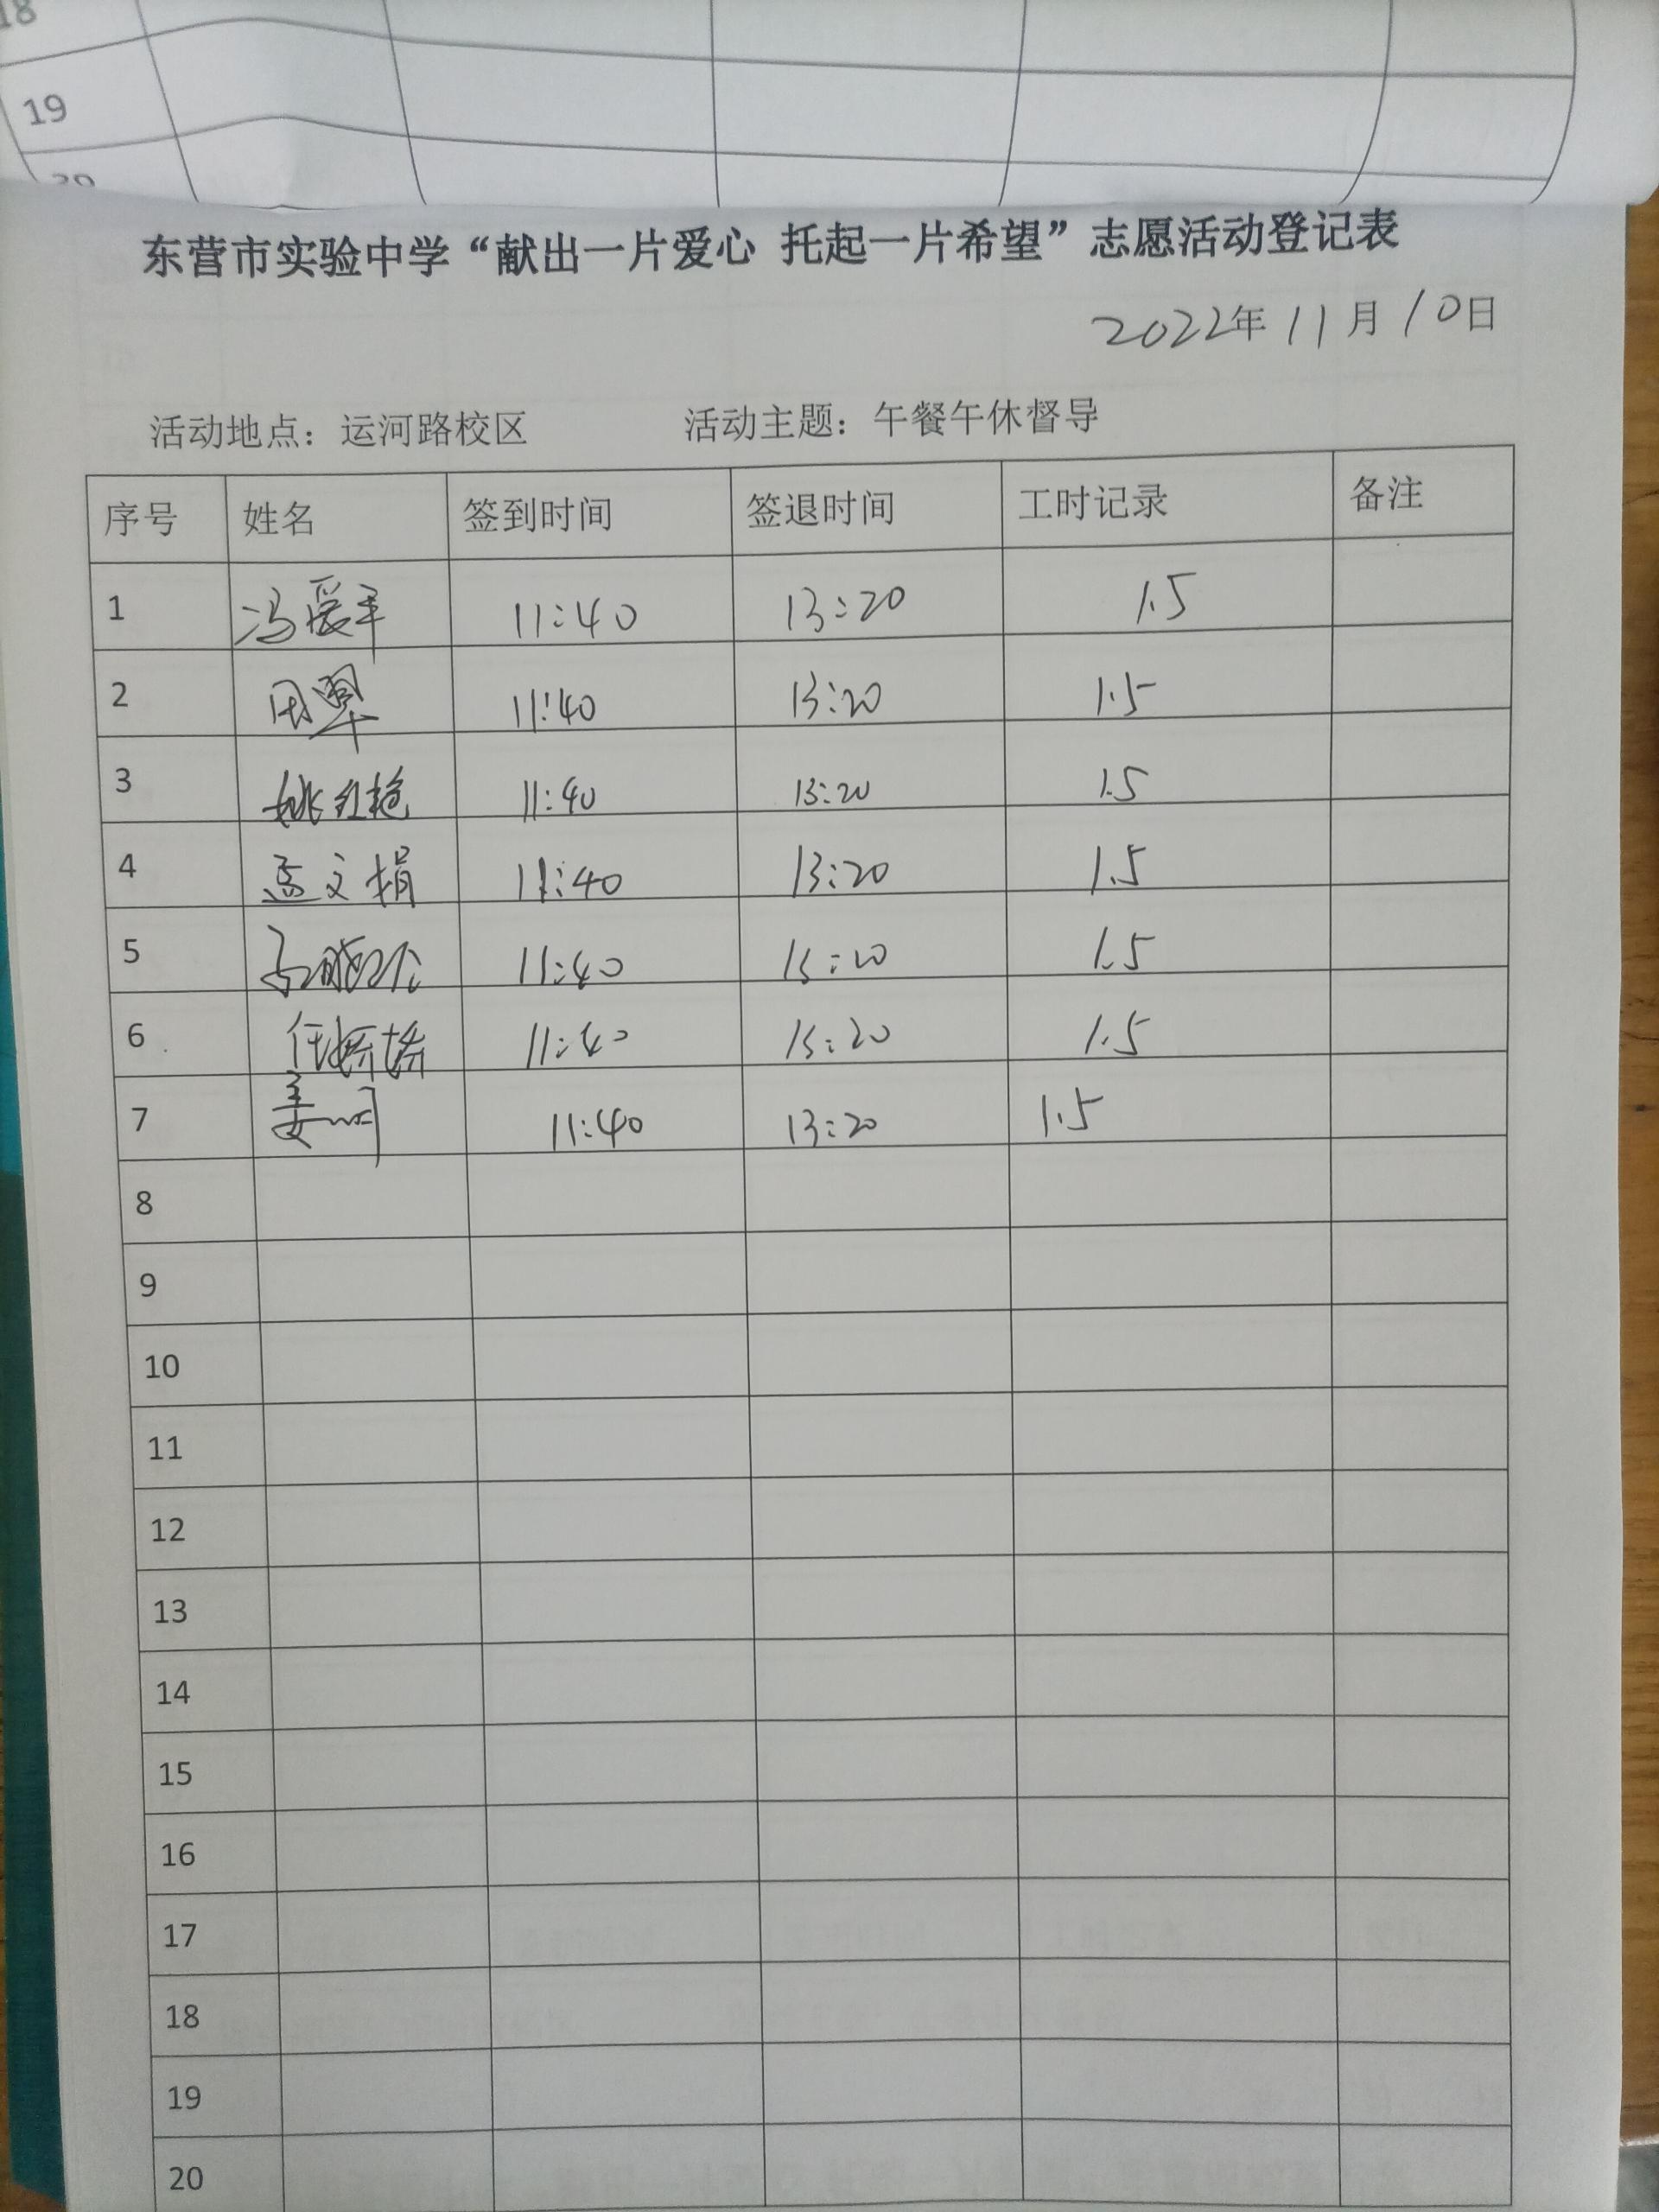 18
19
20
东营市实验中学“献出一片爱心 托起一片希望”志愿活动登记表
2022年11月10日
活动地点：运河路校区 活动主题：午餐午休督导
序号 姓名 签到时间 签退时间 工时记录 备注
1 冯爱军 11:40 13:20 1.5
2 11:40 13:20 1.5
3 姚红艳 11:40 13:20 1.5
4 孟文娟 11:40 13:20 1.5
5 11:40 13:20 1.5
6 任娇娇 11:40 13:20 1.5
7 姜 11:40 13:20 1.5
8
9
10
11
12
13
14
15
16
17
18
19
20